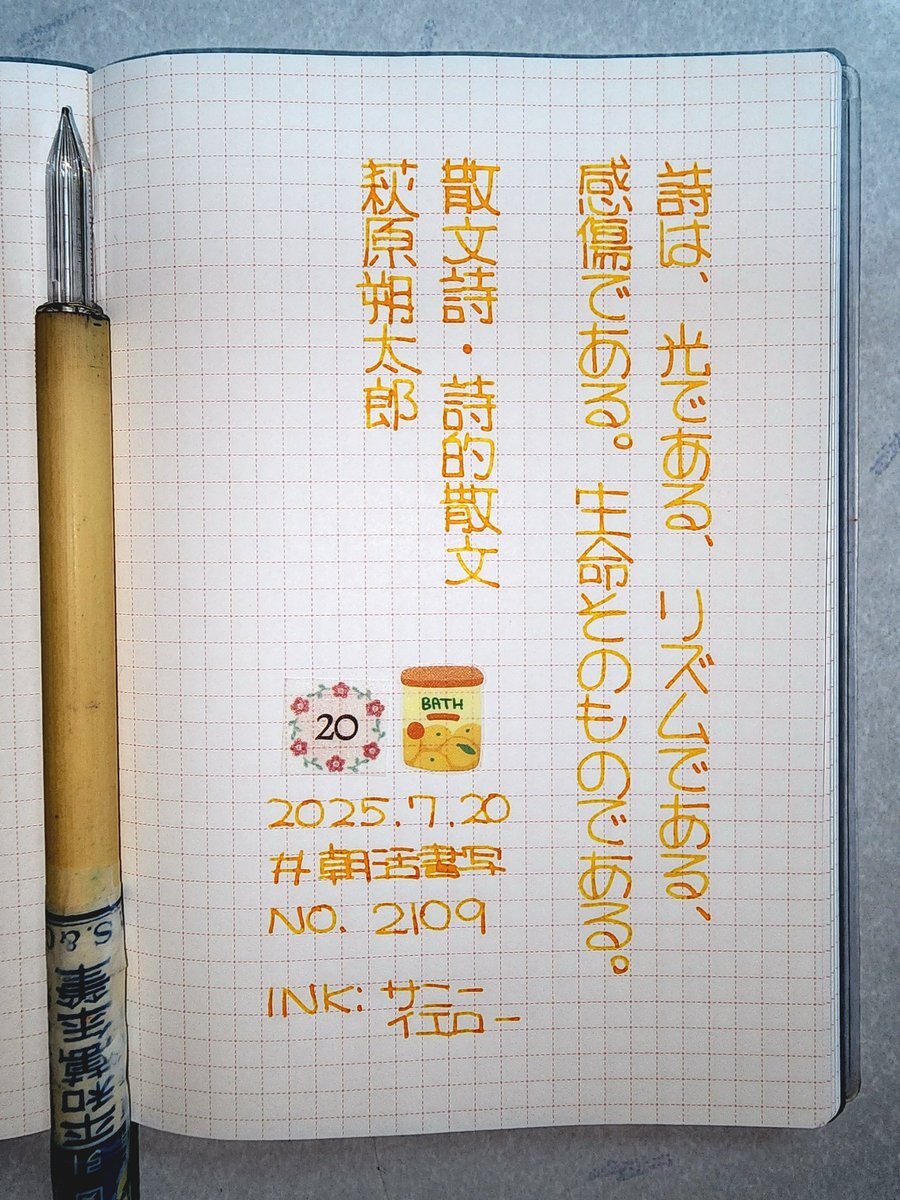 詩は、光である、リズムである、
感傷である。生命そのものである。
散文詩・詩的散文
萩原朔太郎
BATH
20
2025.7.20
#朝活書写
NO. 2109
INK: サニー
イエロー